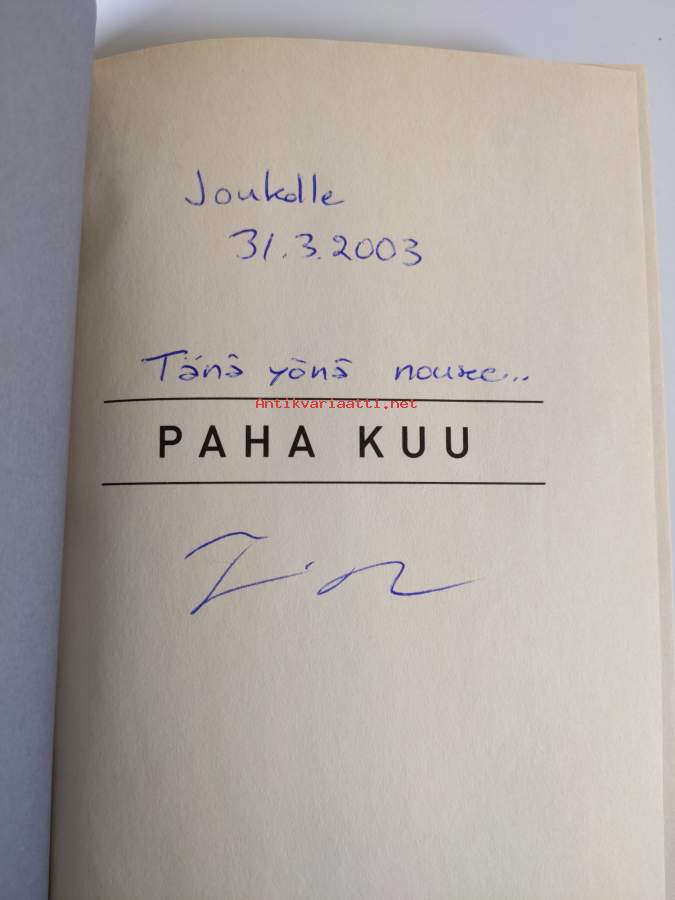 Joukolle
31.3.2003
Tänä yönä nousee..
Antikvariaatti.net
PAHA KUU